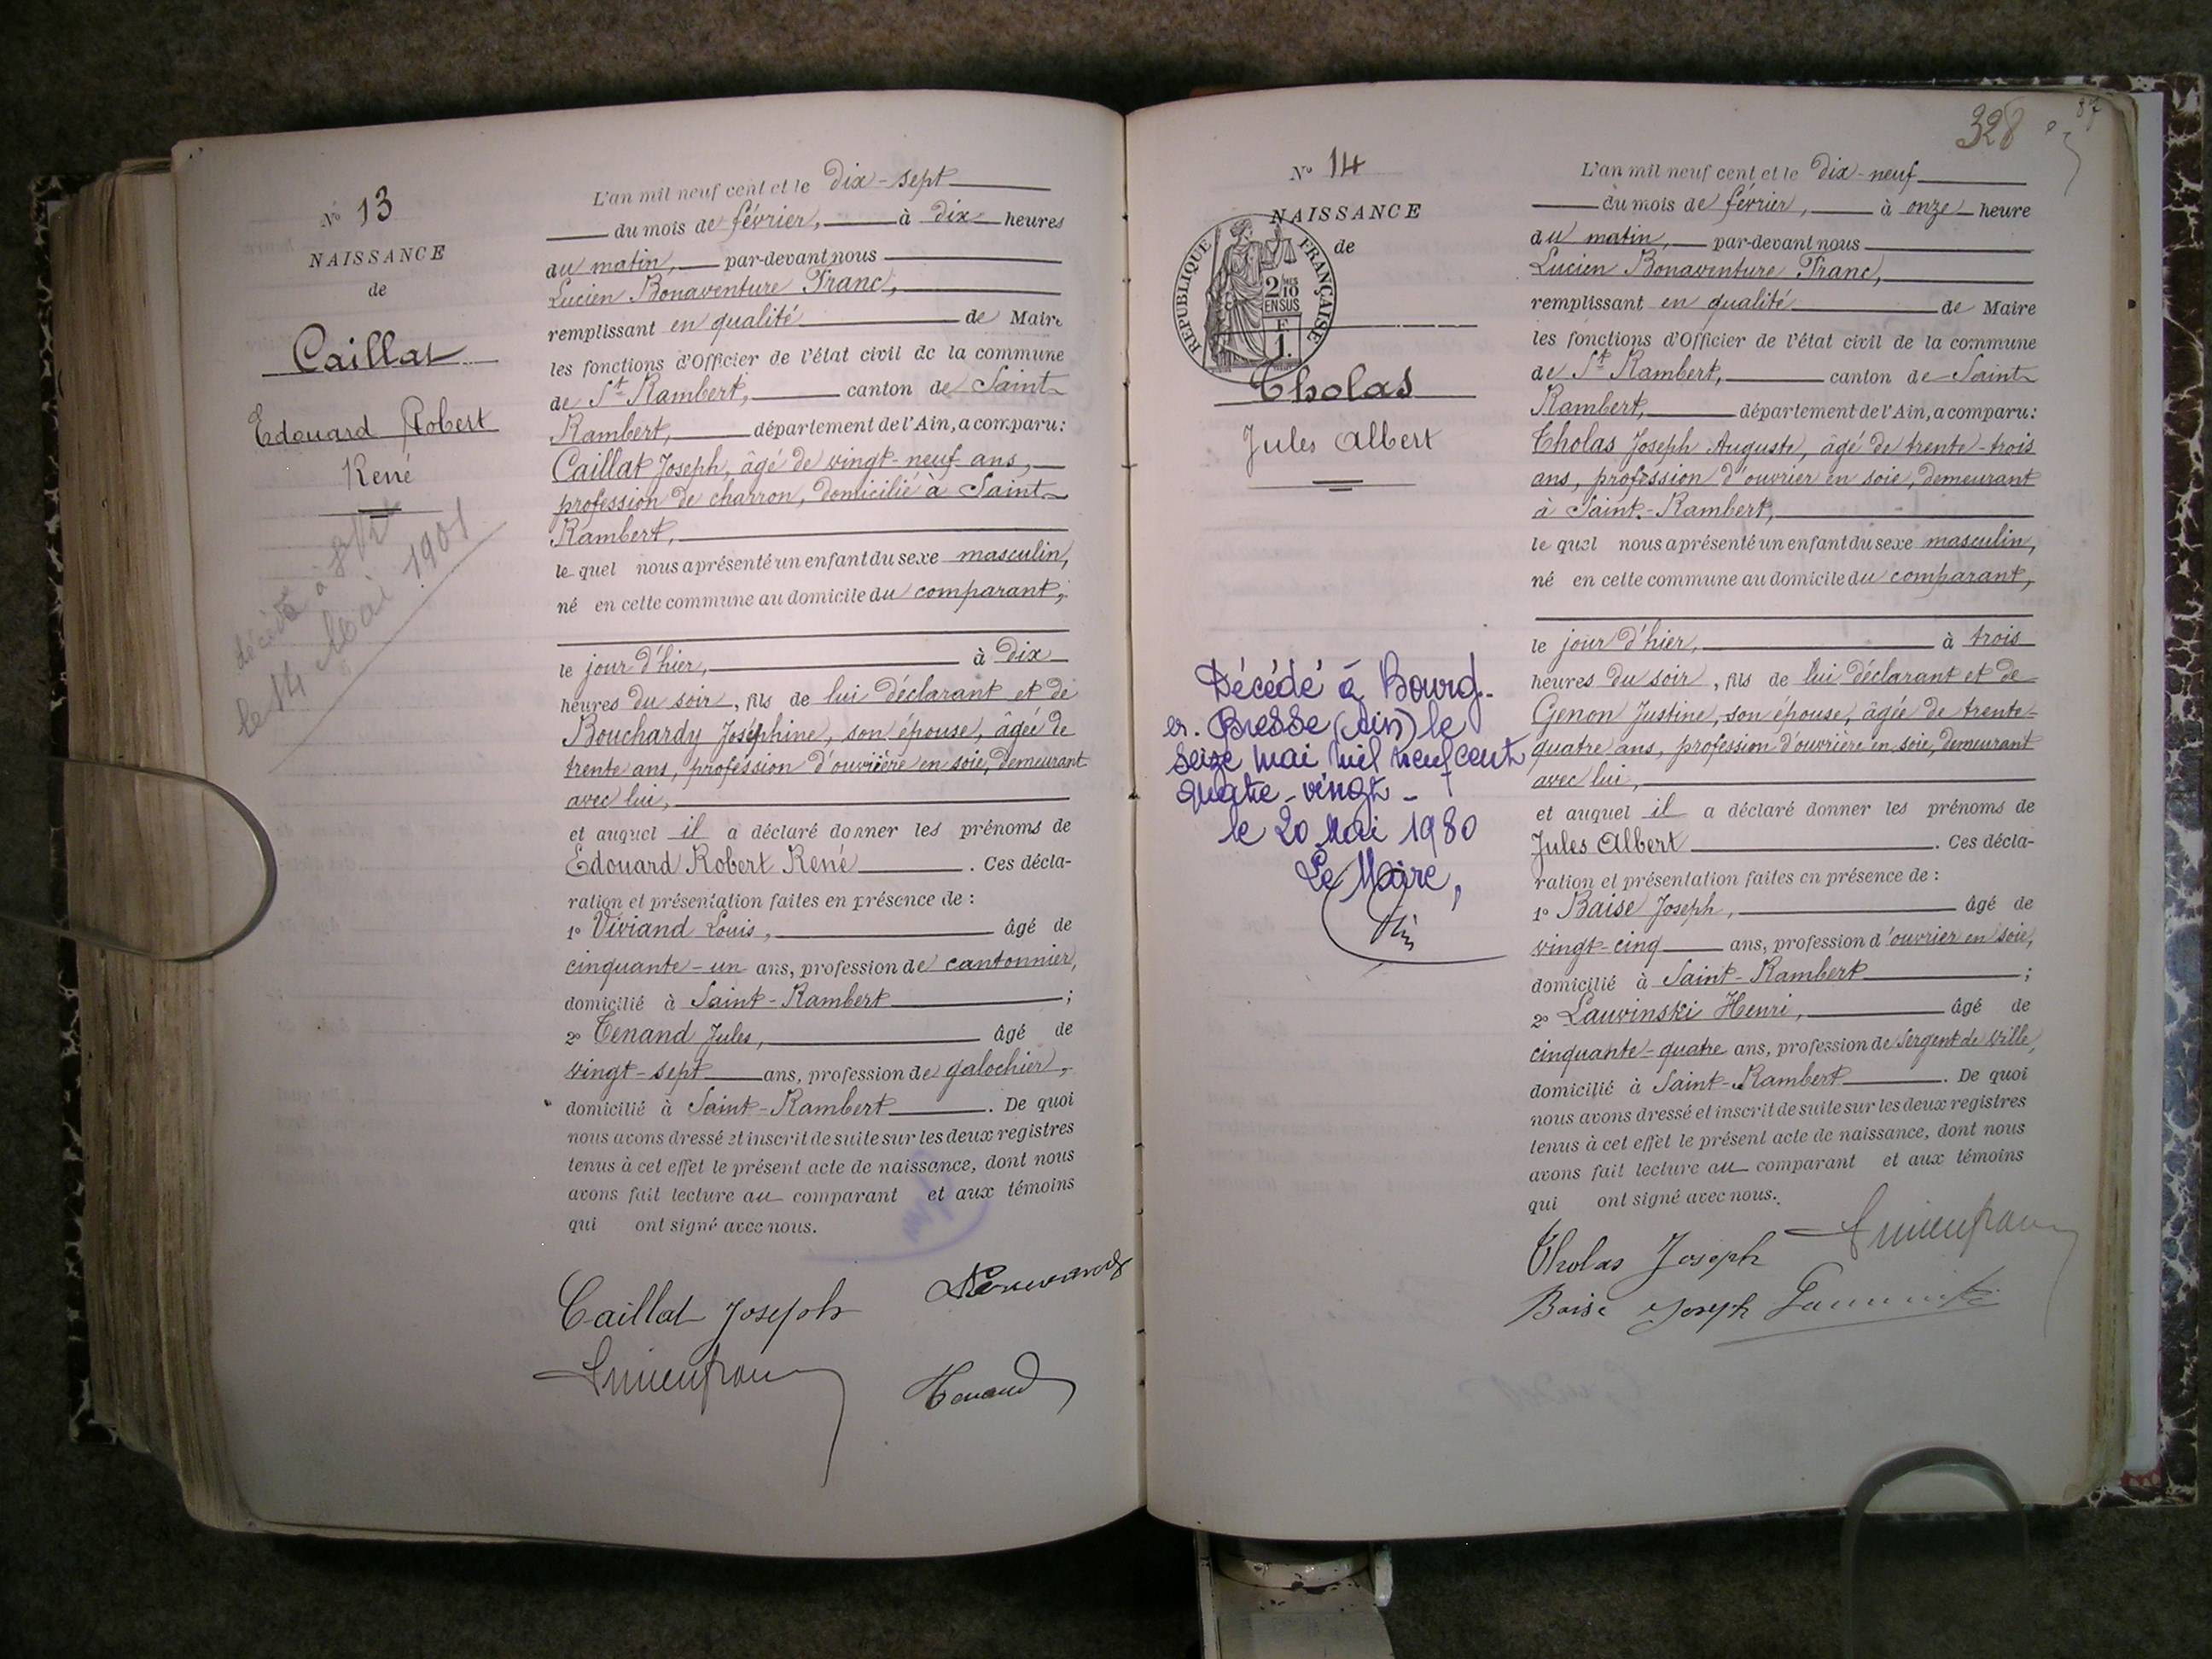 N° 13
NAISSANCE
de
Caillat
Edouard Robert
René
décédé à
le 14 Mai 1901
L'an mil neuf cent et le Dix-sept
du mois de février, à dix heures
du matin, par-devant nous
Lucien Bonaventure Franc,
remplissant en qualité de Maire
les fonctions d'Officier de l'état civil de la commune
de St Rambert, canton de Saint
Rambert, département de l'Ain, a comparu:
Caillat Joseph, âgé de vingt-neuf ans,
profession de charron, domicilié à Saint
Rambert,
le quel nous a présenté un enfant du sexe masculin,
né en cette commune au domicile du comparant,
le jour d'hier, à dix
heures du soir, fils de lui déclarant et de
Bouchardy Joséphine, son épouse, âgée de
trente ans, profession d'ouvrière en soie, demeurant
avec lui,
et auquel il a déclaré donner les prénoms de
Edouard Robert René. Ces décla-
ration et présentation faites en présence de :
1° Viviand Louis, âgé de
cinquante-un ans, profession de cantonnier,
domicilié à Saint-Rambert ;
2° Tenand Jules, âgé de
vingt-sept ans, profession de galochier,
domicilié à Saint-Rambert. De quoi
nous avons dressé et inscrit de suite sur les deux registres
tenus à cet effet le présent acte de naissance, dont nous
avons fait lecture au comparant et aux témoins
qui ont signé avec nous.
Caillat Joseph
Tenand
328
87
N° 14
NAISSANCE
de
REPUBLIQUE FRANÇAISE
2 MES
10
EN SUS
F.
1.
Tholas
Jules Albert
Décédé à Bourg-
en-Bresse (Ain) le
seize mai mil neuf cent
quatre-vingt-
le 20 Mai 1980
Le Maire,
L'an mil neuf cent et le Dix-neuf
du mois de février, à onze heure
du matin, par-devant nous
Lucien Bonaventure Franc,
remplissant en qualité de Maire
les fonctions d'Officier de l'état civil de la commune
de St Rambert, canton de Saint
Rambert, département de l'Ain, a comparu:
Tholas Joseph Auguste, âgé de trente-trois
ans, profession d'ouvrier en soie, demeurant
à Saint-Rambert,
le quel nous a présenté un enfant du sexe masculin,
né en cette commune au domicile du comparant,
le jour d'hier, à trois
heures du soir, fils de lui déclarant et de
Genon Justine, son épouse, âgée de trente-
quatre ans, profession d'ouvrière en soie, demeurant
avec lui,
et auquel il a déclaré donner les prénoms de
Jules Albert. Ces décla-
ration et présentation faites en présence de :
1° Baise Joseph, âgé de
vingt-cinq ans, profession d'ouvrier en soie,
domicilié à Saint-Rambert ;
2° Lauwinski Henri, âgé de
cinquante-quatre ans, profession de Sergent de ville,
domicilié à Saint-Rambert. De quoi
nous avons dressé et inscrit de suite sur les deux registres
tenus à cet effet le présent acte de naissance, dont nous
avons fait lecture au comparant et aux témoins
qui ont signé avec nous.
Tholas Joseph
Baise Joseph